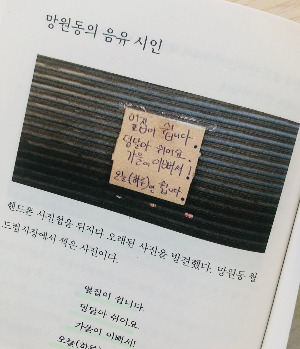 망원동의 음유 시인
옆집이 쉽니다.
덩달아 쉬어요.
가을이 이뻐서!
오늘(하루)만 쉽니다.
핸드폰 사진첩을 뒤지다 오래된 사진을 발견했다. 망원동 월
드컵시장에서 찍은 사진이다.
옆집이 쉽니다.
덩달아 쉬어요.
가을이 이뻐서!